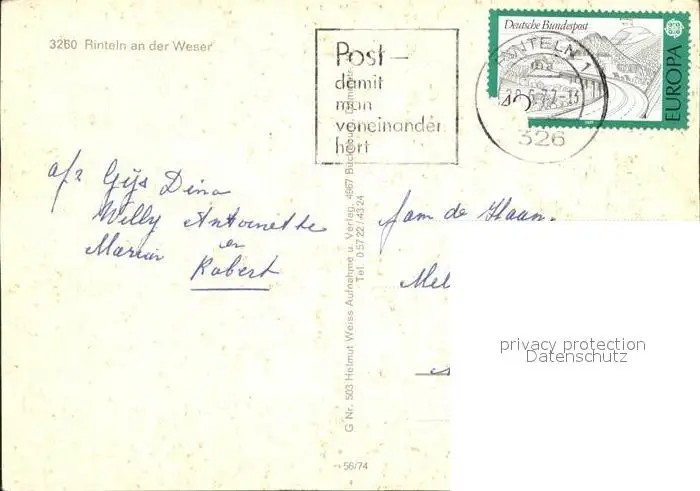 3260 Rinteln an der Weser
Post –
damit
man
voneinander
hört
Deutsche Bundespost
EUROPA
RINTELN 1
326
afz Gijs Dina
Willy Antoinette
Marian en
Robert
Fam de Haan.
Mel
G Nr. 503 Helmut Weiss Aufnahme u. Verlag, 4967 Bückeburg,
Tel. 0 57 22 / 43 24
56/74
privacy protection
Datenschutz